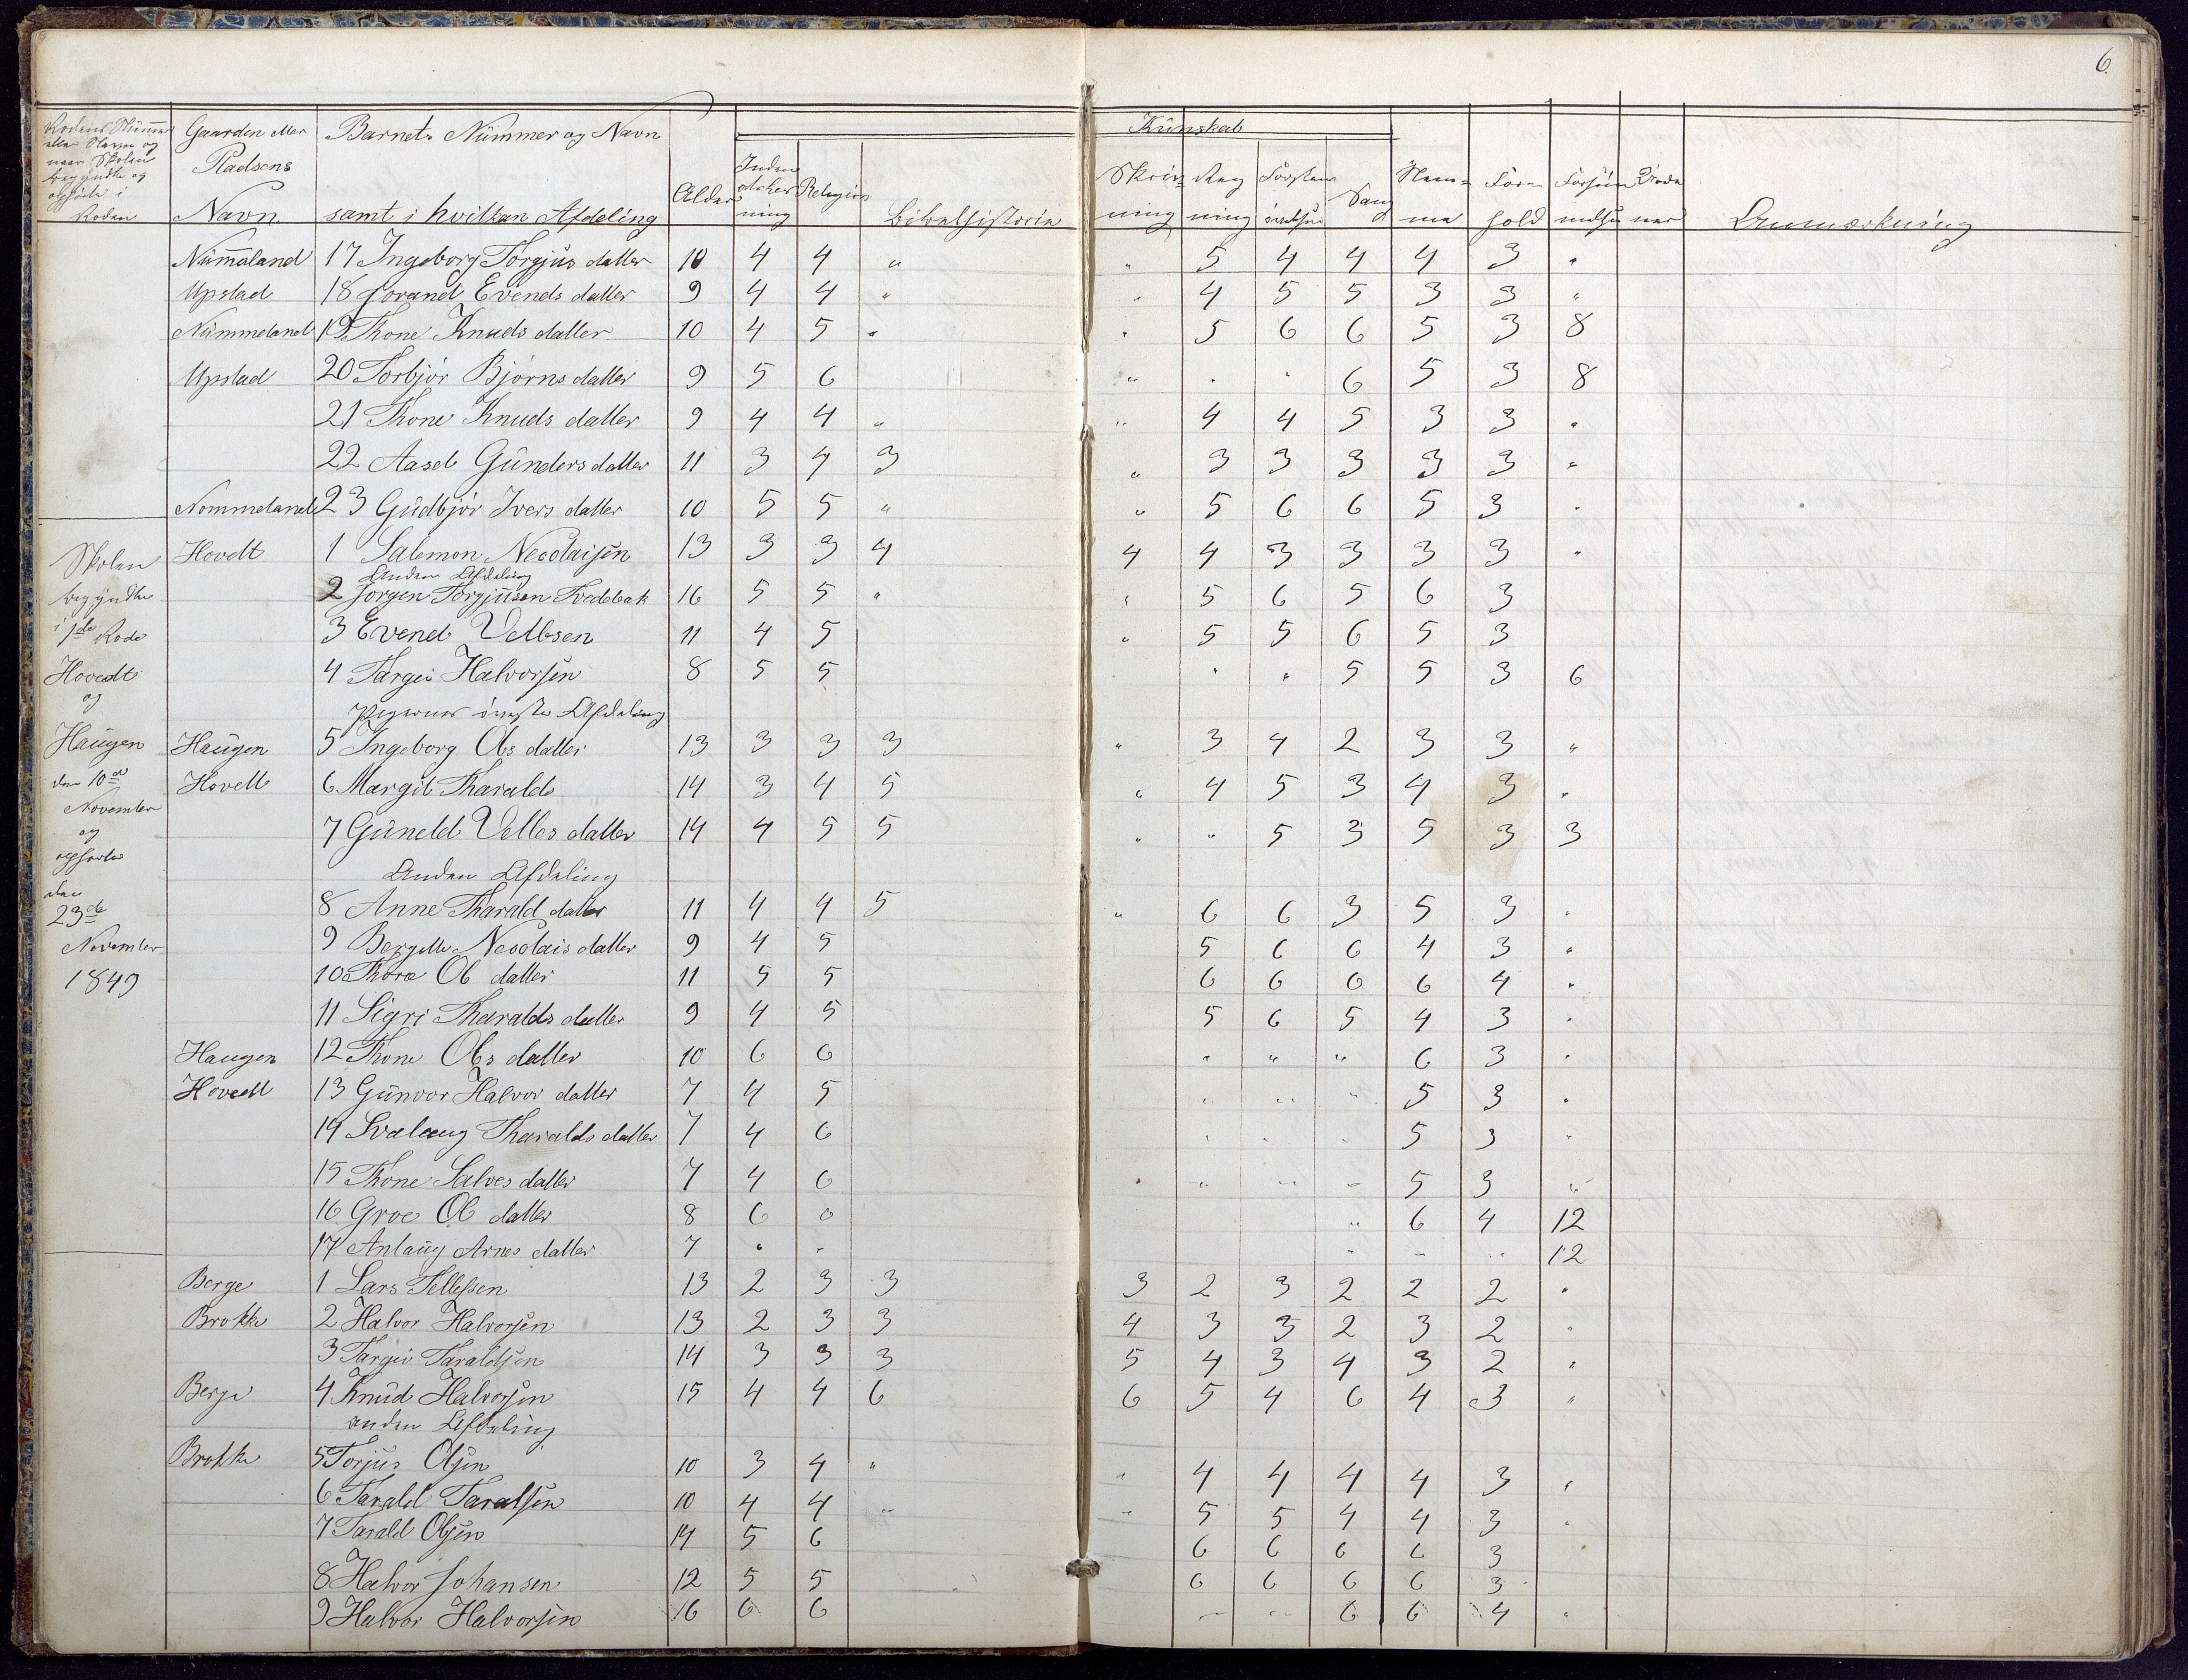 6.
Rodens Nummer eller Navn og naar Skolen begyndte og ophørte i Roden | Gaarden eller Pladsens Navn | Barnets Nummer og Navn samt i hvilken Afdeling | Alder | Kûnskab: Inden adsker ning | Religion | Bibelhistorie | Skriv=ning | Reg ning | Forstan | Sang | Nem=me | For=hold | Forsûm melser | Anmærkning
Nûmmeland 17 Ingeborg Torgjus datter 10 4 4 " " 5 4 4 4 3 "
Upstad 18 Jorand Evends datter 9 4 4 " " 4 5 5 3 3 "
Nûmmeland 19 Thone Knuds datter 10 4 5 " " 5 6 6 5 3 8
Upstad 20 Torbjør Bjørns datter 9 5 6 " " " 6 5 3 8
21 Thone Knuds datter 9 4 4 " " 4 4 5 3 3 "
22 Aasel Gûnders datter 11 3 4 3 " 3 3 3 3 3 "
Nommeland 23 Gûdbjør Ivers datter 10 5 5 " " 5 6 6 5 3 "
Skolen begyndte i 1de Rode Hovedt og Haugen den 10de November og ophørte den 23de November 1849
Hovdt 1 Salemon Necolaisen 13 3 3 4 4 4 3 3 3 3 "
Anden Afdeling
2 Jorgen Torgjusen Tvedebak 16 5 5 " " 5 6 5 6 3
3 Evend Vellesen 11 4 5 " 5 5 6 5 3
4 Targei Halvorsen 8 5 5 " " 5 5 3 6
Pigernes øverste Afdeling
Haugen 5 Ingeborg Ols datter 13 3 3 3 " 3 4 2 3 3 "
Hovett 6 Margit Tharalds 14 3 4 5 " 4 5 3 4 3 "
7 Gûneld Velles datter 14 4 5 5 " " 5 3 5 3 3
Anden Afdeling
8 Anne Tharald datter 11 4 4 5 " 6 6 3 5 3 "
9 Bergitte Necolais datter 9 4 5 5 6 6 4 3 "
10 Thore Ol datter 11 5 5 6 6 6 6 4 "
11 Sigri Tharalds datter 9 4 5 5 6 5 4 3 "
Haugen 12 Thone Ols datter 10 6 6 " " " 6 3 "
Hovedt 13 Gûnvor Halvor datter 7 4 5 " " " 5 3 "
14 Svalaug Tharalds datter 7 4 6 " " " 5 3 "
15 Thone Salves datter 7 4 6 " " " " 5 3 "
16 Groe Ol datter 8 6 0 " 6 4 12
17 Anlaug Arnes datter 7 " " " " " 12
Berge 1 Lars Tellefsen 13 2 3 3 3 2 3 2 2 2 "
Brokke 2 Halvor Halvorsen 13 2 3 3 4 3 3 2 3 2 "
3 Targei Taraldsen 14 3 3 3 5 4 3 4 3 2 "
Berge 4 Knûd Halvorsen 15 4 4 6 6 5 4 6 4 3 "
anden Afdeling
Brokke 5 Torjus Olsen 10 3 4 " " 4 4 4 4 3 "
6 Tarald Taralsen 10 4 4 " " 5 5 4 4 3 "
7 Tarald Olsen 14 5 6 6 6 6 6 3
8 Halvor Johansen 12 5 5 6 6 6 6 3
9 Halvor Halvorsen 16 6 6 " " 6 6 4 "